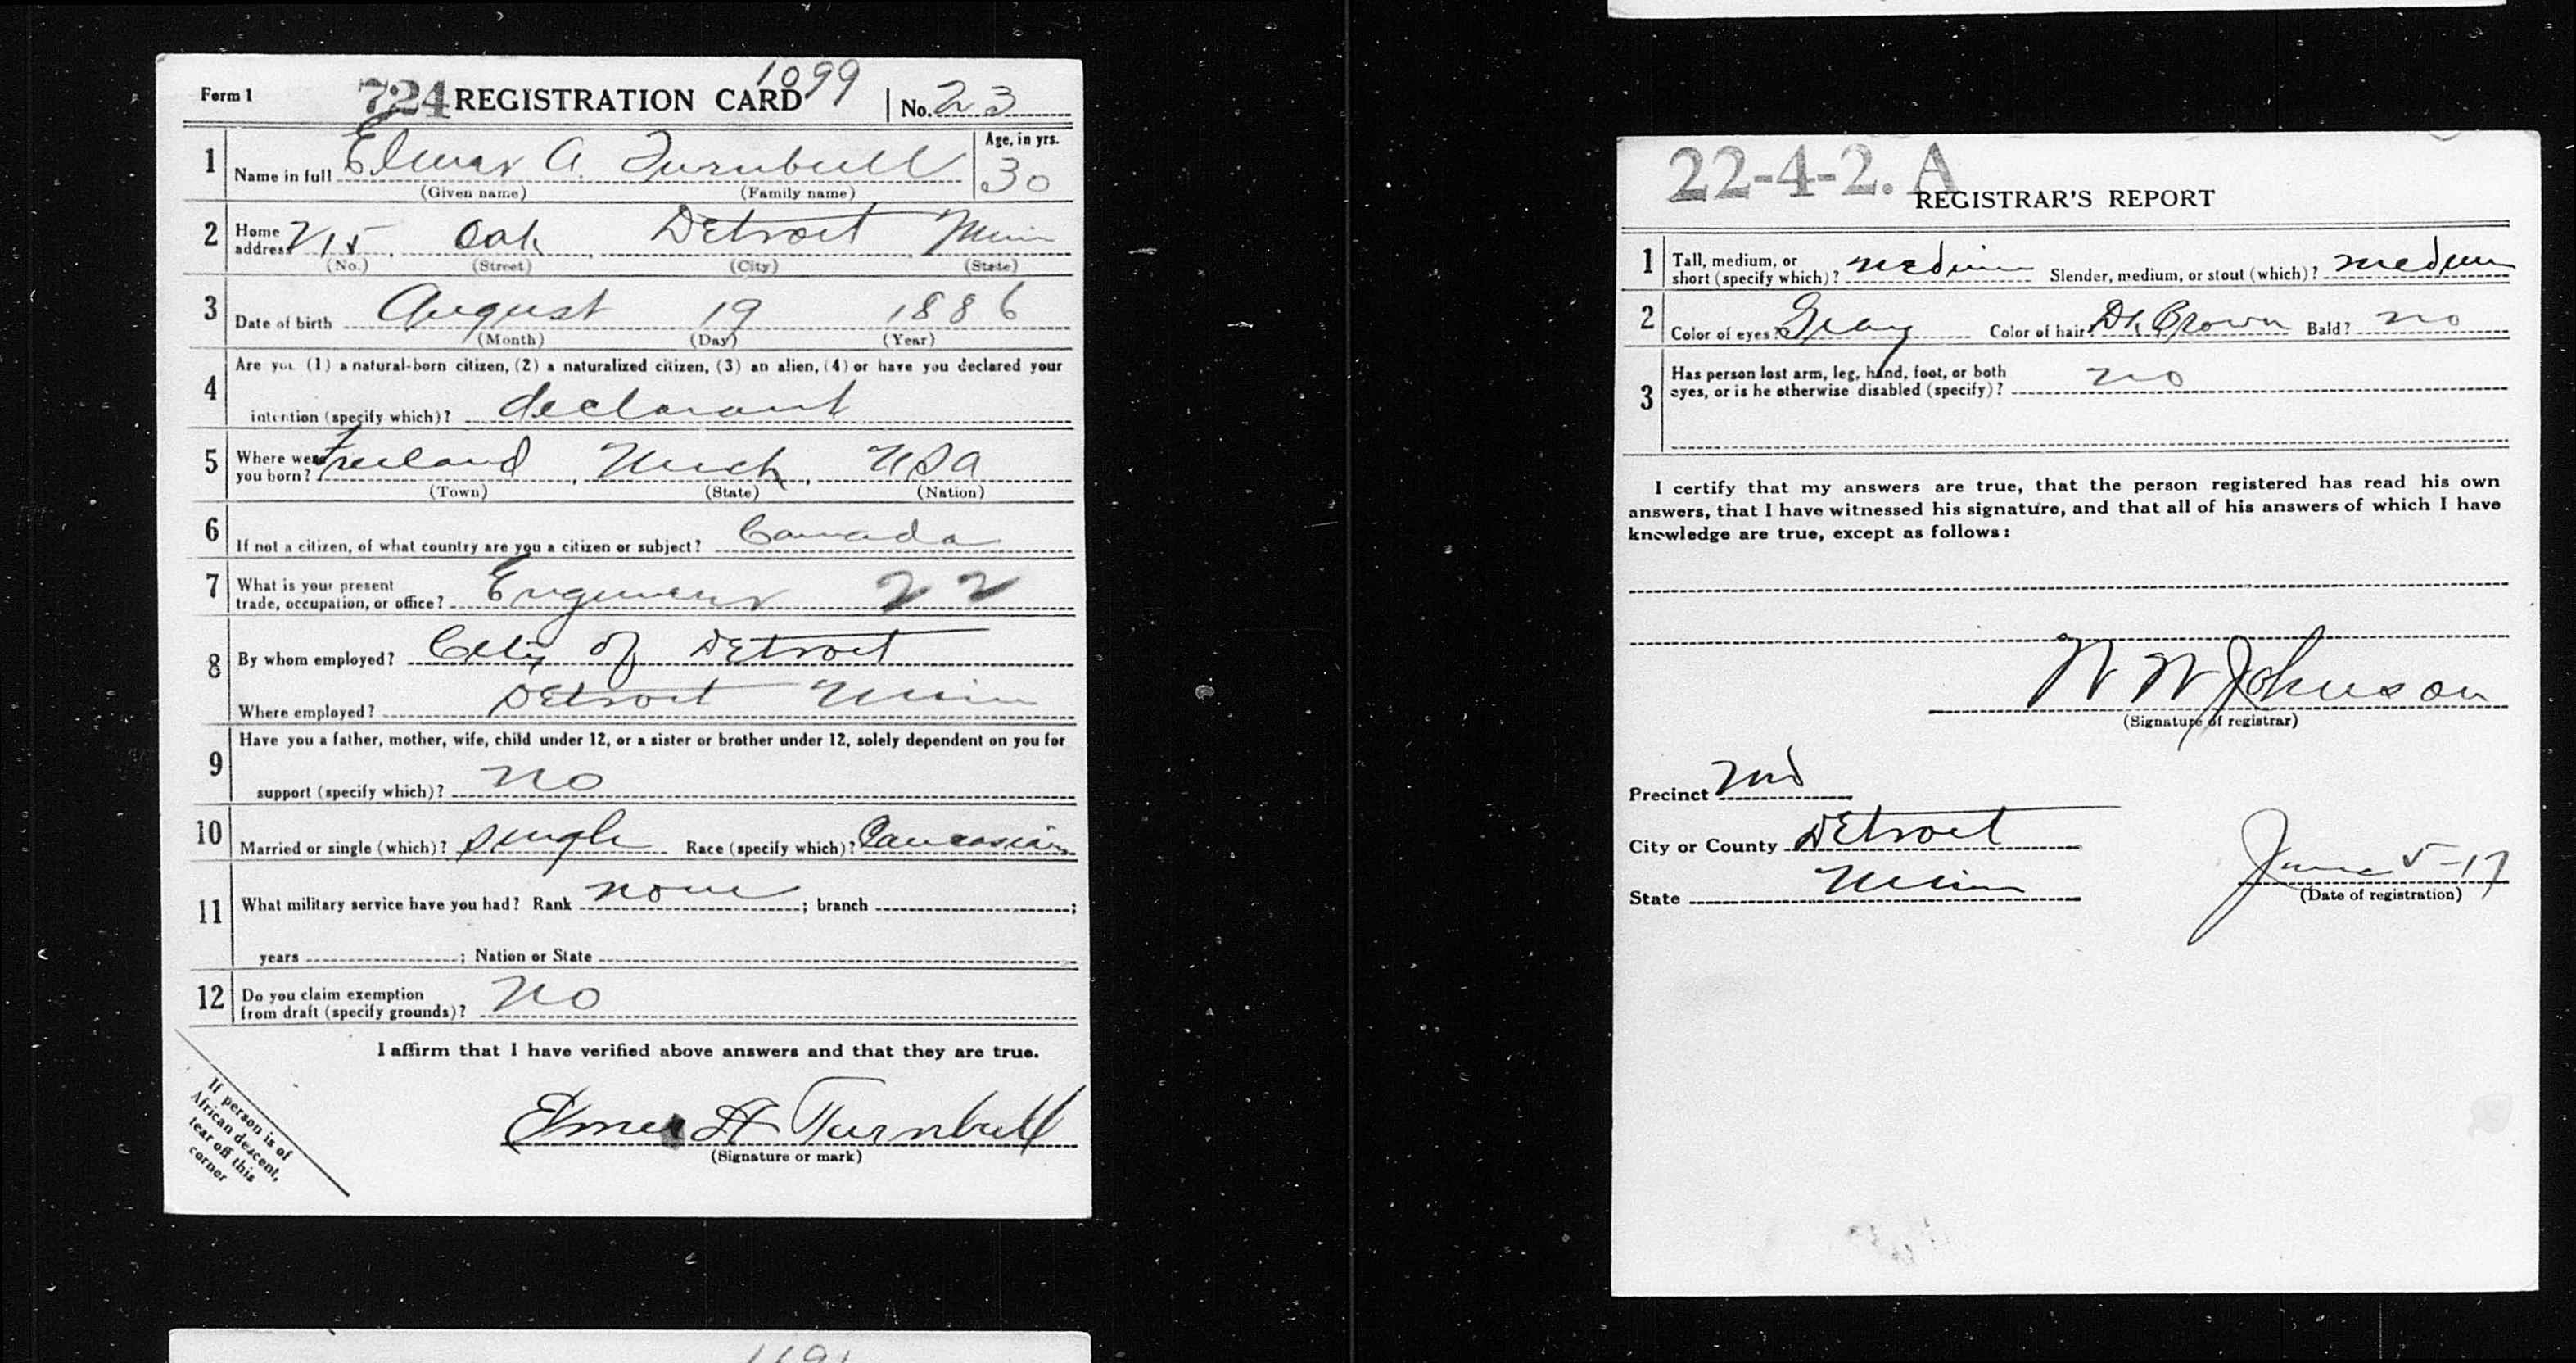 1099
Form 1 724 REGISTRATION CARD No. 23
1 Name in full Elmer A. Turnbull Age, in yrs. 30
(Given name) (Family name)
2 Home address 215 Oak Detroit Minn
(No.) (Street) (City) (State)
3 Date of birth August 19 1886
(Month) (Day) (Year)
4 Are you (1) a natural-born citizen, (2) a naturalized citizen, (3) an alien, (4) or have you declared your
intention (specify which)? declarant
5 Where were you born? Freeland, Mich, USA
(Town) (State) (Nation)
6 If not a citizen, of what country are you a citizen or subject? Canada
7 What is your present
trade, occupation, or office? Engineer 22
8 By whom employed? City of Detroit
Where employed? Detroit Minn
9 Have you a father, mother, wife, child under 12, or a sister or brother under 12, solely dependent on you for
support (specify which)? no
10 Married or single (which)? single Race (specify which)? Caucasian
11 What military service have you had? Rank none ; branch ;
years ; Nation or State
12 Do you claim exemption
from draft (specify grounds)? No
I affirm that I have verified above answers and that they are true.
Elmer A Turnbull
(Signature or mark)
If person is of
African descent,
tear off this
corner
22-4-2. A
REGISTRAR'S REPORT
1 Tall, medium, or
short (specify which)? medium Slender, medium, or stout (which)? medium
2 Color of eyes? Gray Color of hair? Dk Brown Bald? no
3 Has person lost arm, leg, hand, foot, or both
eyes, or is he otherwise disabled (specify)? no
I certify that my answers are true, that the person registered has read his own
answers, that I have witnessed his signature, and that all of his answers of which I have
knowledge are true, except as follows:
W W Johnson
(Signature of registrar)
Precinct 2nd
City or County Detroit
State Minn
June 5-17
(Date of registration)